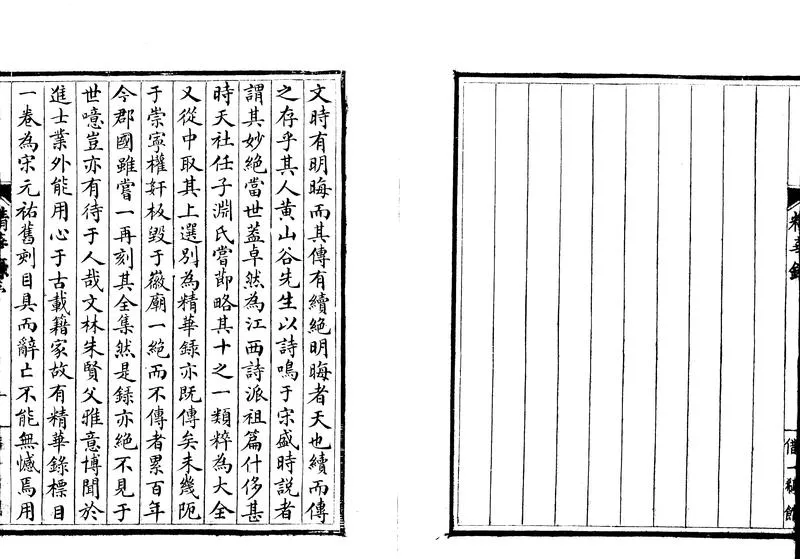 精華錄
文時有明晦而其傳有續絕明晦者天也續而傳
之存乎其人黄山谷先生以詩鳴于宋盛時説者
謂其妙絕當世葢卓然為江西詩派祖篇什侈甚
時天社任子淵氏嘗節略其十之一類粹為大全
又從中取其上選別為精華録亦既傳矣未幾阨
于崇寧權奸板毀于徽廟一絕而不傳者累百年
今郡國雖嘗一再刻其全集然是録亦絕不見于
世噫豈亦有待于人哉文林朱賢父雅意博聞於
進士業外能用心于古載籍家故有精華錄標目
一卷為宋元祐舊刻目具而辭亡不能無憾焉用
精華